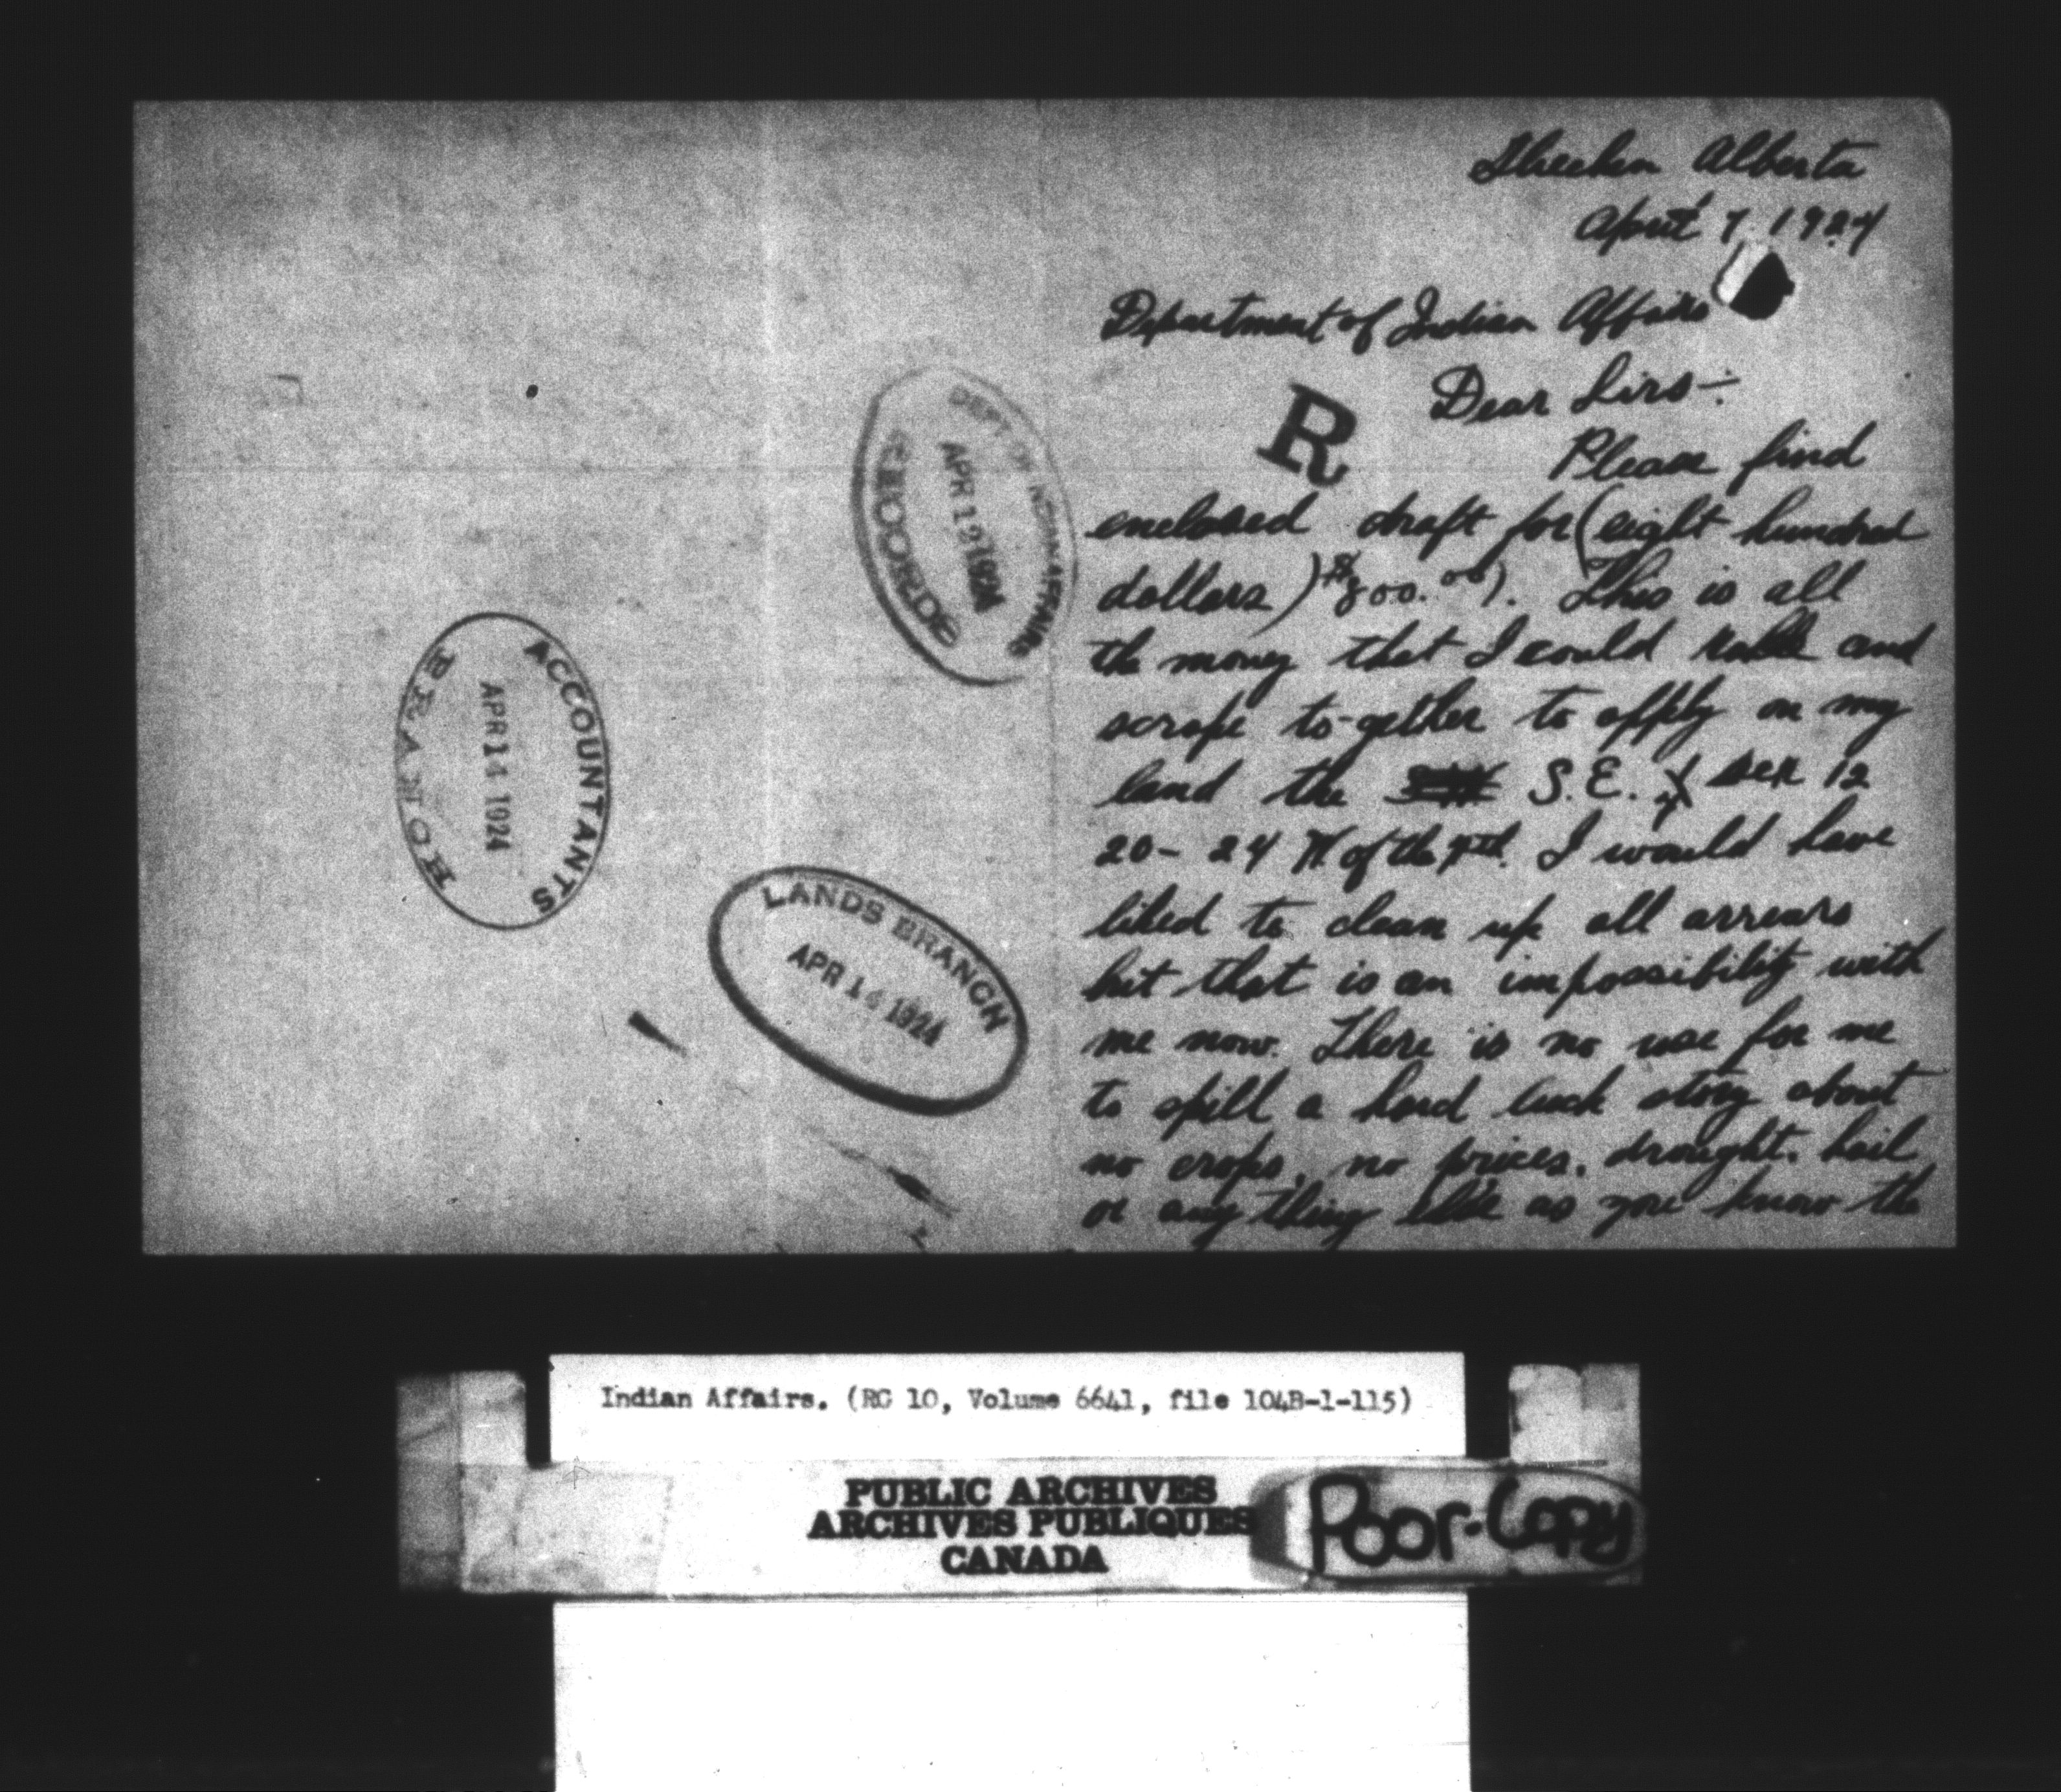 Alberta
April 7. 1924
Department of Indian Affairs
Dear Sirs:-
R
Please find
enclosed draft for (eight hundred
dollars) $800.00). This is all
the money that I could and
scrape to-gether to apply on my
land the S.E. 1/4 sec 12
20-24 W of the 4th. I would have
liked to clean up all arrears
but that is an impossibility with
me now. There is no use for me
to spill a hard luck story about
no crops, no prices, drought, hail
or any thing else as you know the
DEPT OF INDIAN AFFAIRS
APR 12 1924
RECORDS
ACCOUNTANTS
APR 14 1924
BRANCH
LANDS BRANCH
APR 14 1924
Indian Affairs. (RG 10, Volume 6641, file 104B-1-115)
PUBLIC ARCHIVES
ARCHIVES PUBLIQUES
CANADA
Poor-Copy